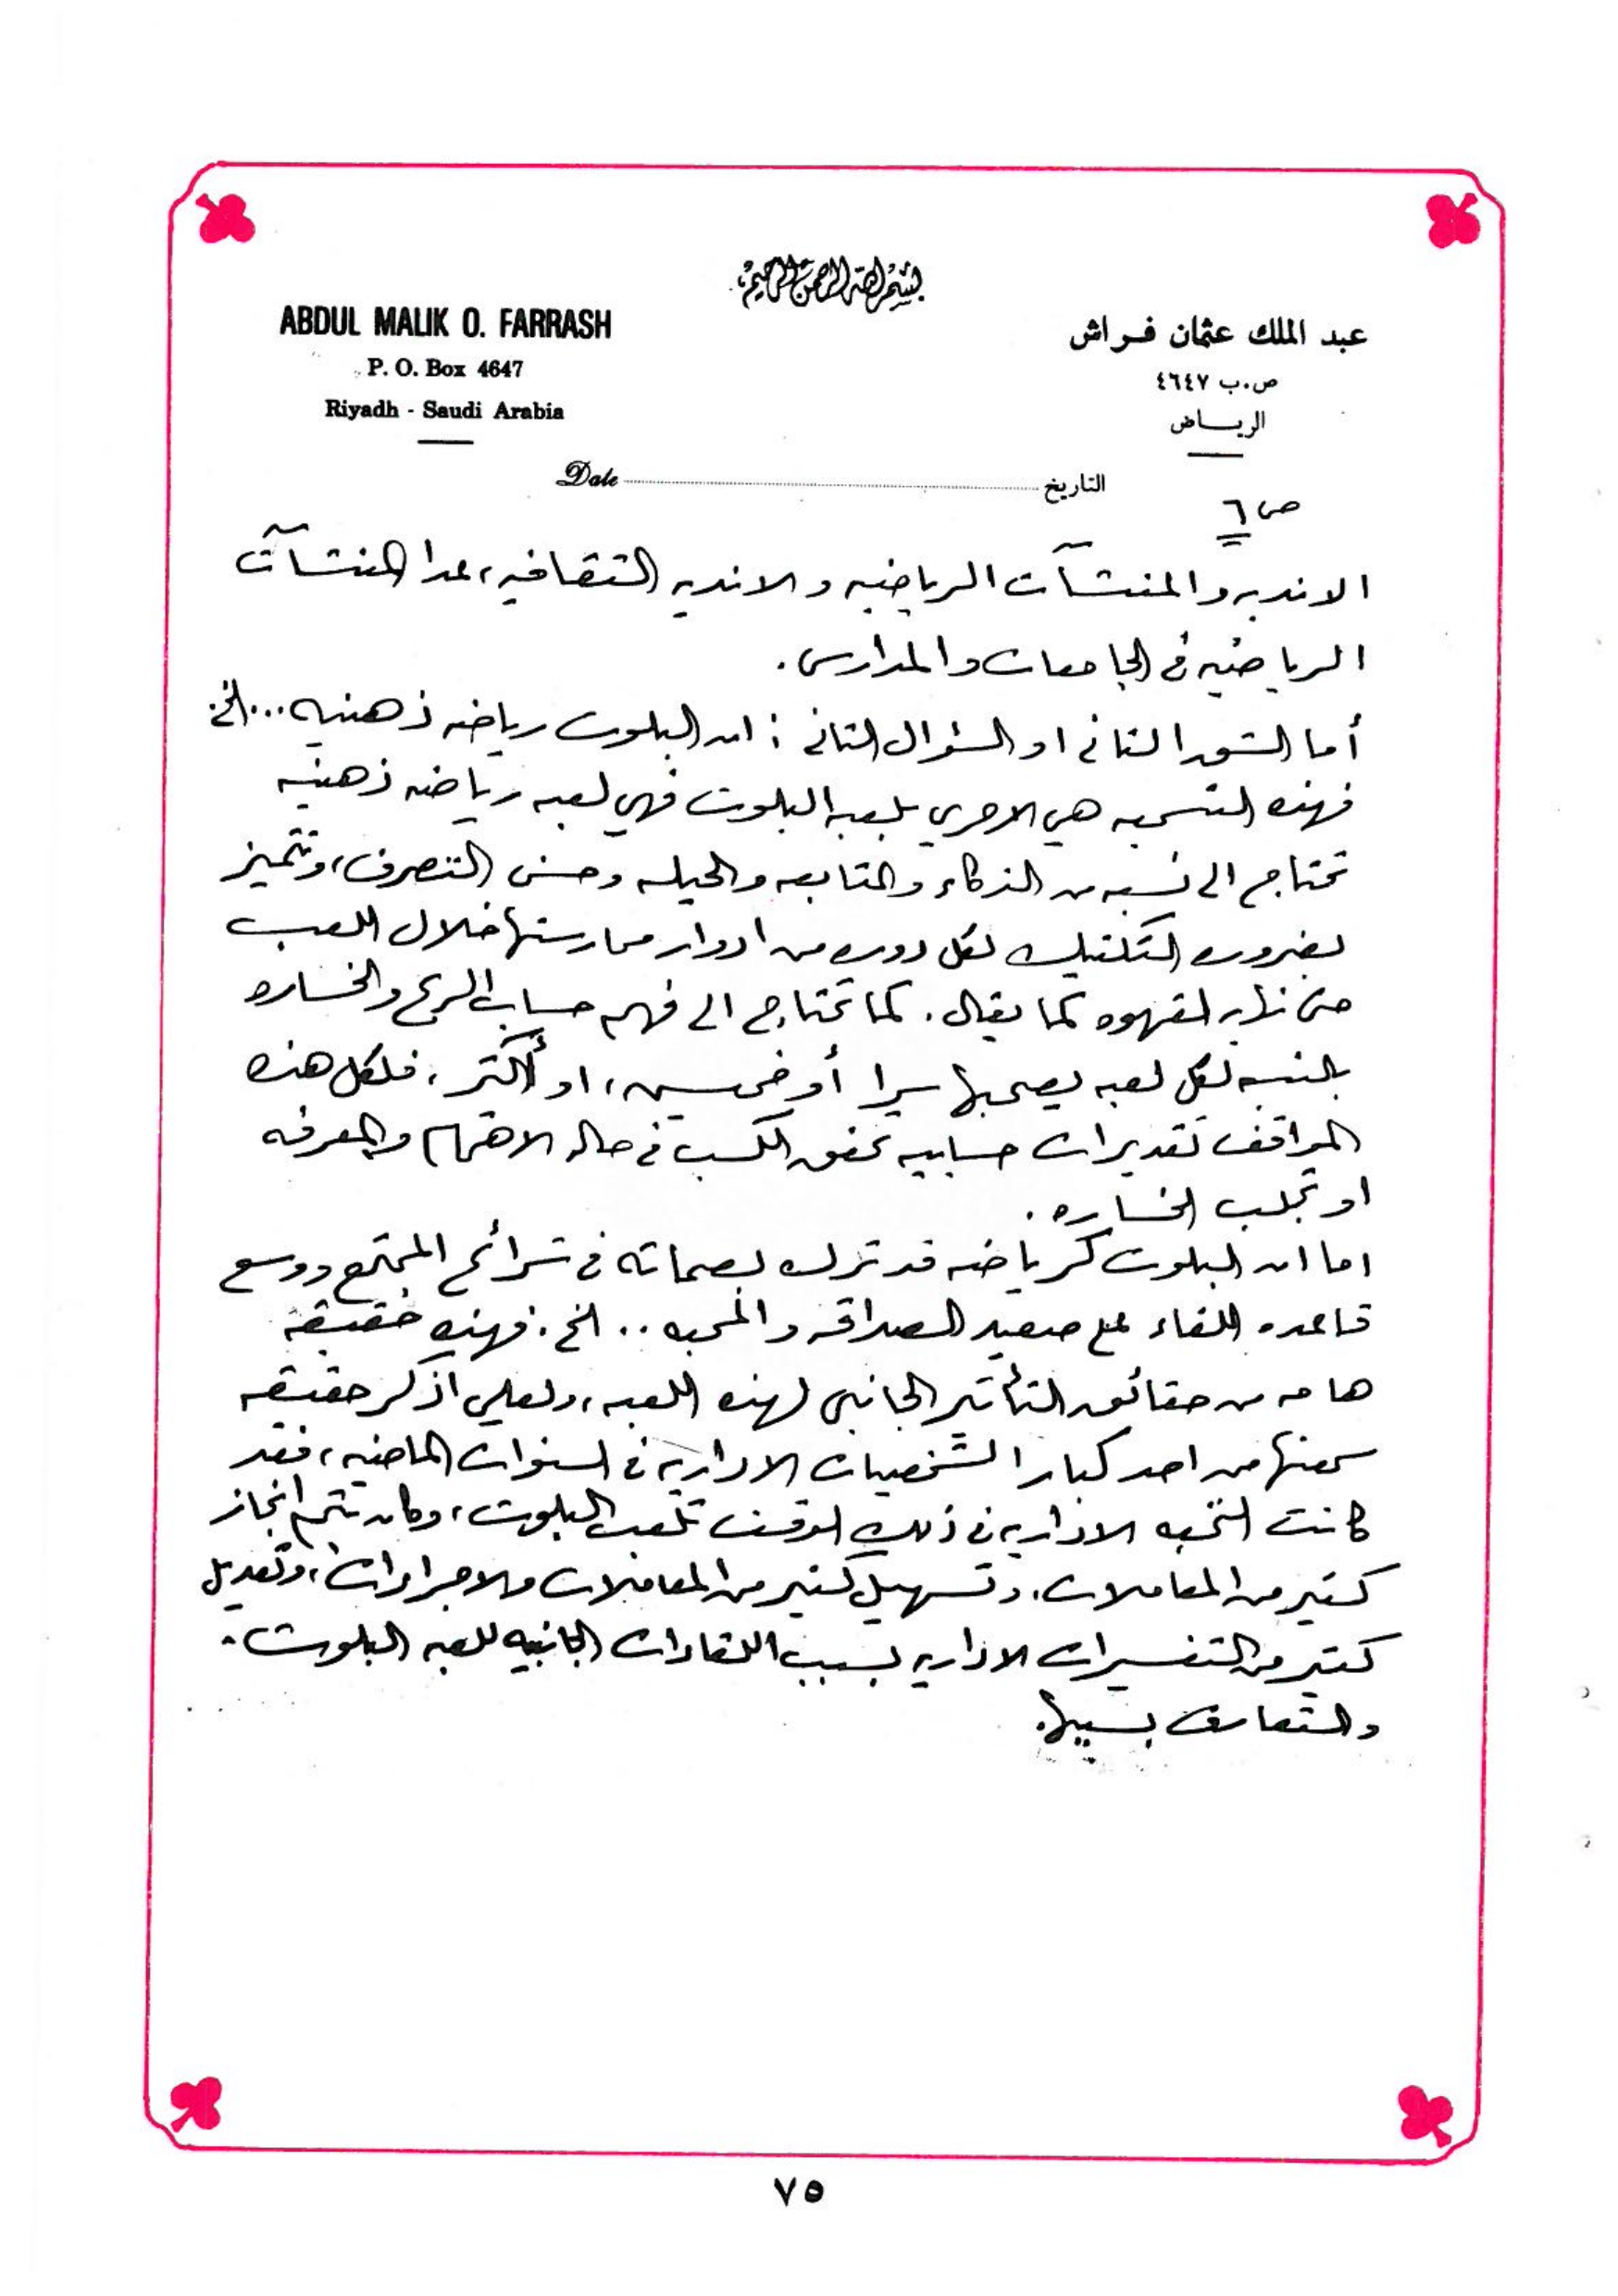 بسم الله الرحمن الرحيم
ABDUL MALIK O. FARRASH
P. O. Box 4647
Riyadh - Saudi Arabia
عبد الملك عثمان فراش
ص.ب ٤٦٤٧
الرياض
Date التاريخ
ص ٦
الانديه والمنشآت الرياضيه والانديه الثقافيه، عدا المنشآت
الرياضيه في الجامعات والمدارس.
أما الشق الثاني او السؤال الثاني: ان البلوت رياضه ذهنيه...الخ.
فهذه التسميه هي الاحرى بلعبة البلوت فهي لعبه رياضه ذهنيه
تحتاج الى نسبه من الذكاء والمتابعه والحيله وحسن التصرف، وتتميز
بضروره التكتيك لكل دوره من ادوار ممارستها خلال اللعب
كما يقال. كما تحتاج الى فهم حساب الربح والخساره
بالنسبه لكل لعبه يصحبها سرا أو خمسين، او أكثر، فلكل هذه
المواقف تقديرات حسابيه تحقق الكسب في حالة الاهتمام والمعرفه
او تجلب الخساره.
اما ان البلوت كرياضه قد ترك بصماته في شرائح المجتمع ووسع
قاعده اللقاء على صعيد الصداقه والمحبه.. الخ. فهذه حقيقة
هامه من حقائق التأثير الجانبي لهذه اللعبه، ولعلي اذكر حقيقه
سمعتها من احد كبار الشخصيات الاداريه في السنوات الماضيه، فقد
كانت النخبه الاداريه في ذلك الوقت تلعب البلوت، وكان يتم انجاز
كثير من المعاملات، وتسهيل كثير من المعاملات والاجراءات، وتعديل
كثير من التفسيرات الاداريه بسبب اللقاءات الجانبيه للعبه البلوت.
والتعارف بسببها.
٧٥